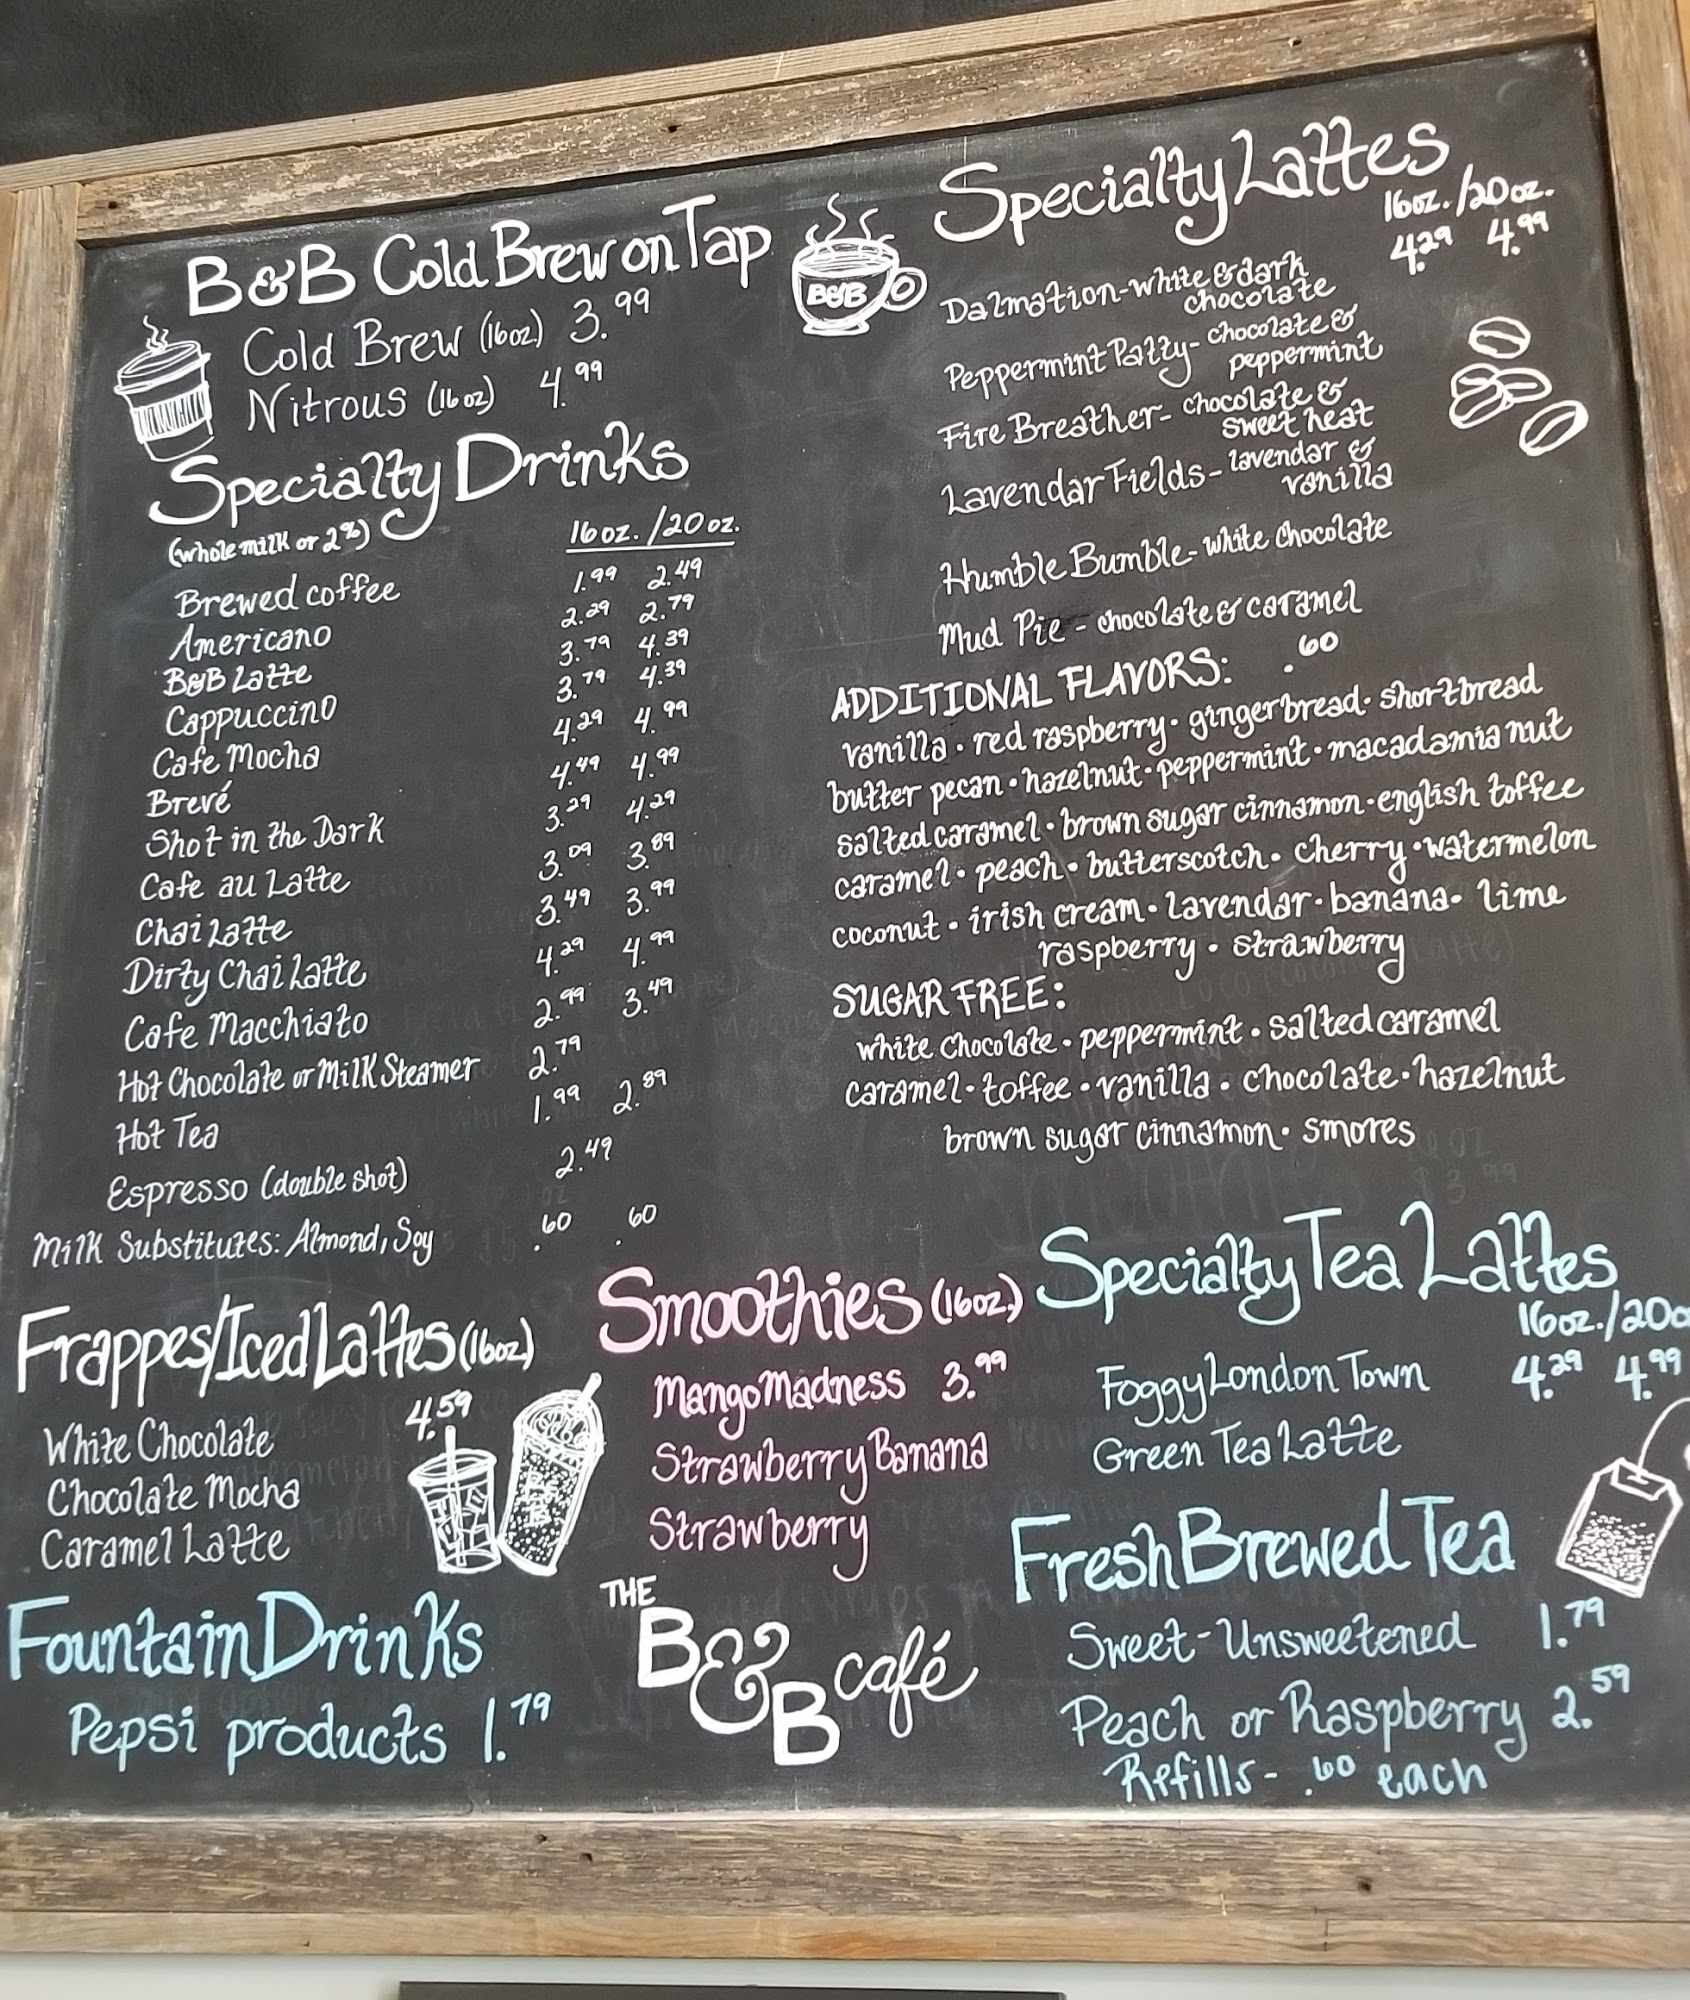 B&B Cold Brew on Tap
Cold Brew (16oz.) 3.99
Nitrous (16oz) 4.99
Specialty Drinks
(whole milk or 2%) 16oz./20oz.
Brewed coffee 1.99 2.49
Americano 2.29 2.79
B&B Latte 3.79 4.39
Cappuccino 3.79 4.39
Cafe Mocha 4.29 4.99
Brevé 4.49 4.99
Shot in the Dark 3.29 4.29
Cafe au Latte 3.09 3.89
Chai Latte 3.49 3.99
Dirty Chai Latte 4.29 4.99
Cafe Macchiato 2.99 3.49
Hot Chocolate or Milk Steamer 2.79
Hot Tea 1.99 2.89
Espresso (double shot) 2.49
Milk Substitutes: Almond, Soy .60 .60
B&B
Specialty Lattes
16oz./20oz.
4.29 4.99
Dalmation-white & dark
chocolate
Peppermint Patty-chocolate &
peppermint
Fire Breather-chocolate &
sweet heat
Lavendar Fields-lavendar &
vanilla
Humble Bumble-white chocolate
Mud Pie-chocolate & caramel
ADDITIONAL FLAVORS: .60
vanilla · red raspberry · gingerbread · shortbread
butter pecan · hazelnut · peppermint · macadamia nut
salted caramel · brown sugar cinnamon · english toffee
caramel · peach · butterscotch · cherry · watermelon
coconut · irish cream · lavendar · banana · lime
raspberry · strawberry
SUGAR FREE:
white chocolate · peppermint · salted caramel
caramel · toffee · vanilla · chocolate · hazelnut
brown sugar cinnamon · smores
Frappes/Iced Lattes (16oz)
4.59
White Chocolate
Chocolate Mocha
Caramel Latte
B&B
Smoothies (16oz.)
Mango Madness 3.99
Strawberry Banana
Strawberry
Specialty Tea Lattes
16oz./20oz
Foggy London Town 4.29 4.99
Green Tea Latte
Fountain Drinks
Pepsi products 1.79
THE
B&B café
Fresh Brewed Tea
Sweet-Unsweetened 1.79
Peach or Raspberry 2.59
Refills- .60 each